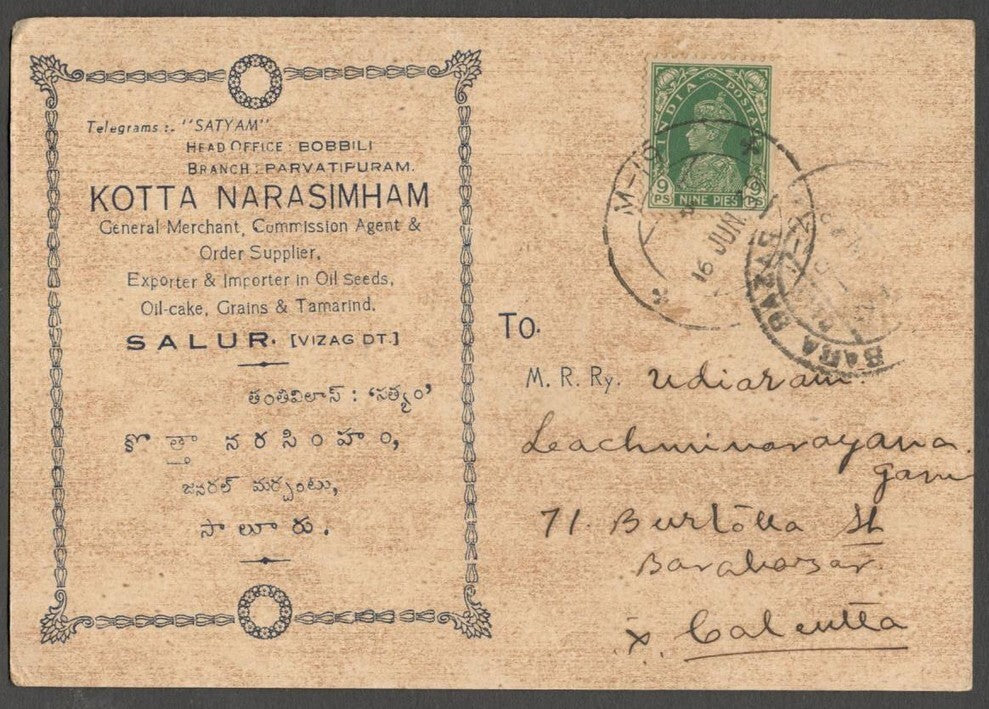 Telegrams :. "SATYAM"
HEAD OFFICE : BOBBILI
BRANCH : PARVATIPURAM.
KOTTA NARASIMHAM
General Merchant, Commission Agent &
Order Supplier,
Exporter & Importer in Oil Seeds,
Oil-cake, Grains & Tamarind.
SALUR. [VIZAG DT.]
తంతివిలాస్ : 'సత్యం'
కొత్తా నరసింహం,
జనరల్ మర్చంటు,
సాలూరు.
INDIA POSTAGE
9 PS NINE PIES 9 PS
16 JUN
BARA BAZAR
To.
M. R. Ry. Udiaram
Leachminarayana
garu
71. Burtolla St
Barabazar
Calcutta